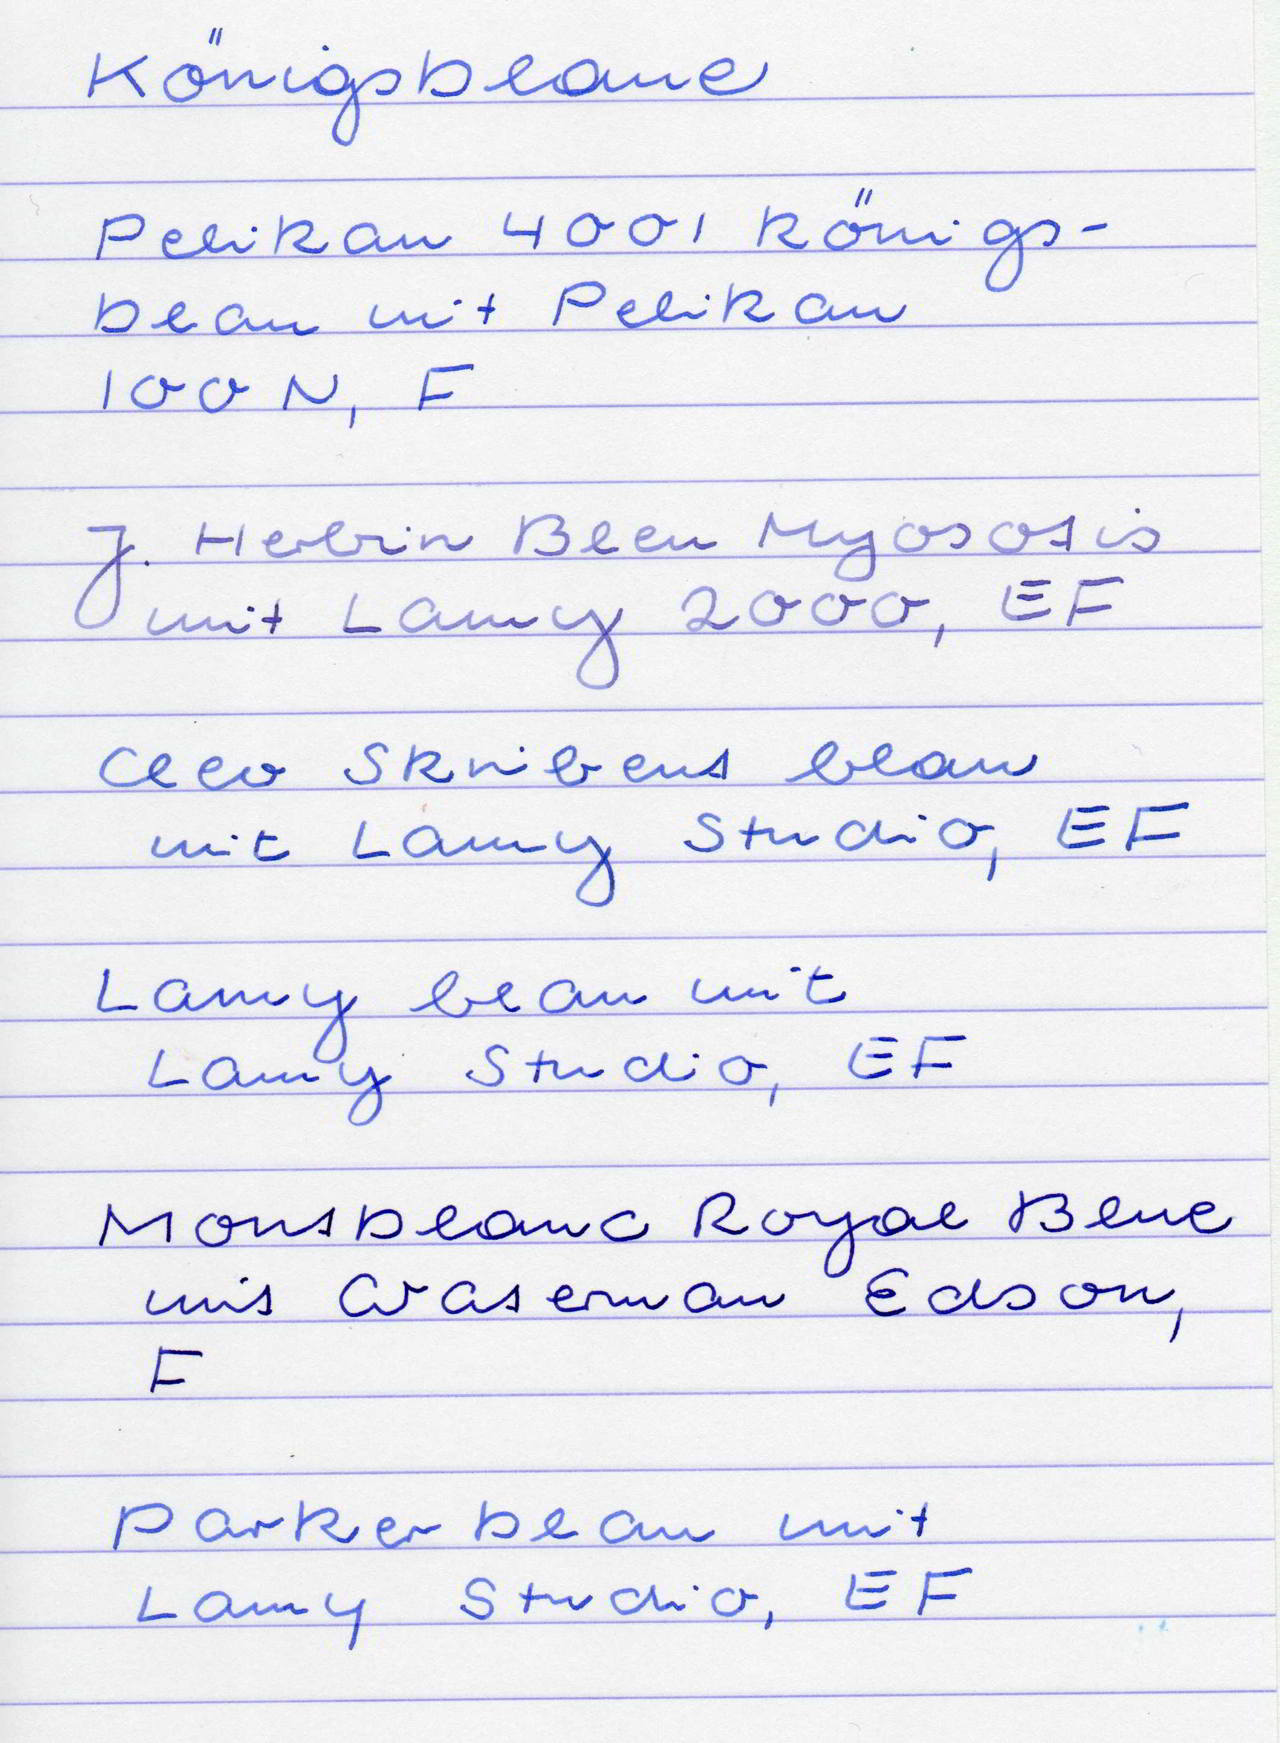 Königsblaue
Pelikan 4001 Königs-
blau mit Pelikan
100 N, F
J. Herbin Bleu Myosotis
mit Lamy 2000, EF
Cleo Skribent blau
mit Lamy Studio, EF
Lamy blau mit
Lamy Studio, EF
Montblanc Royal Blue
mit Waterman Edson,
F
Parker blau mit
Lamy Studio, EF